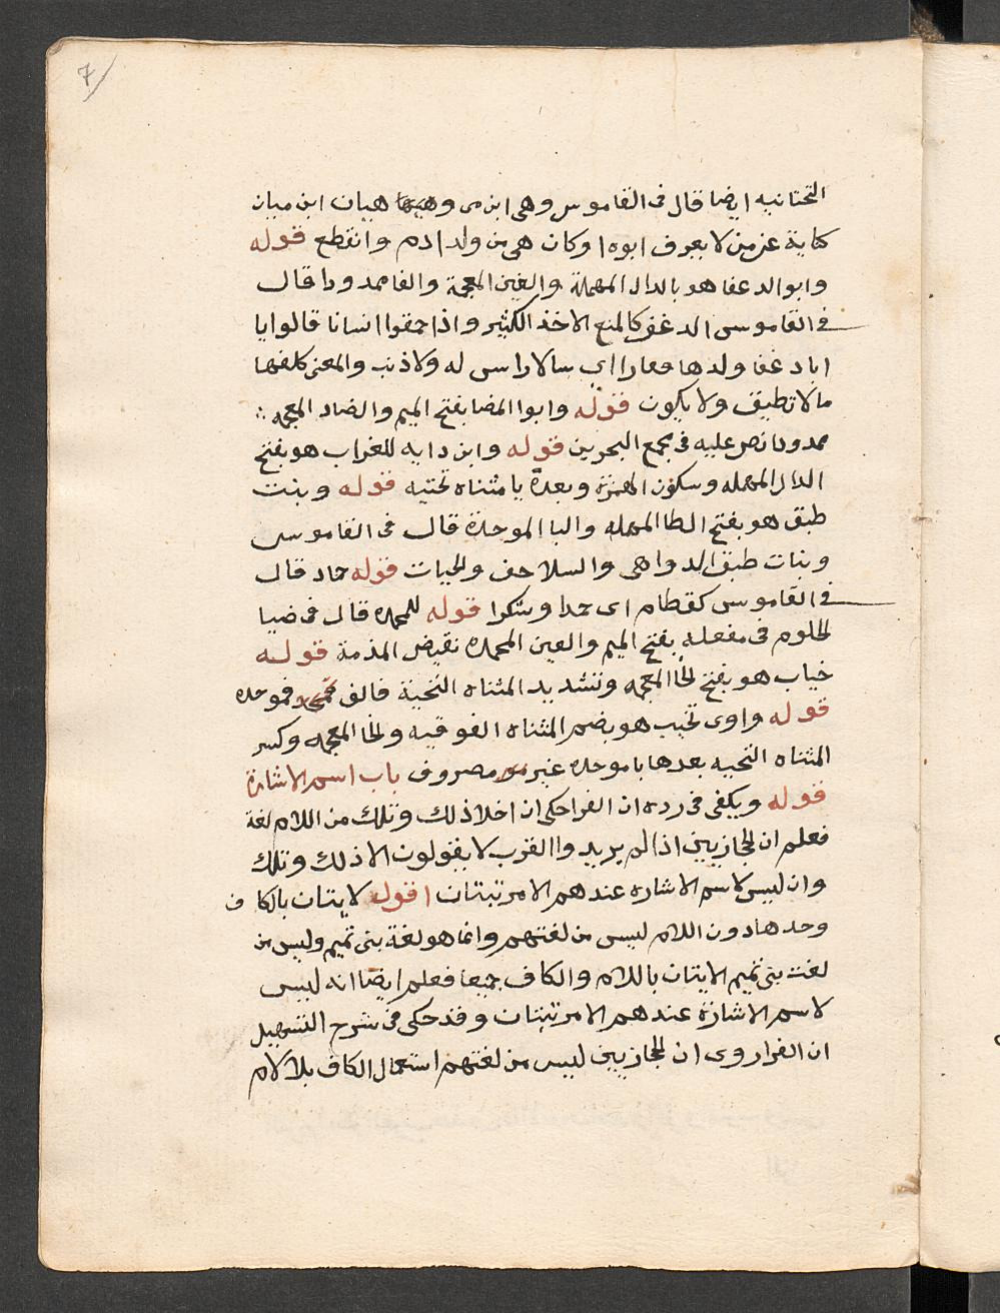 7
التحتانيه ايضا قال فى القاموس وهى ابن مى وهيان ابن ميان
كناية عن من لا يعرف ابوه او كان هى من ولد ادم وانقطع قوله
وابو الدغفا هو بالدال المهملة والغين المعجمة والفا ممدودا قال
فى القاموس الدغف كالمنع الاخذ الكثير واذا حمقوا انسانا قالوا يا
ابا دغفا ولدها فقارا اى سالا راس له ولا ذنب والمعنى كلفها
ما لا تطيق ولا يكون قوله وابوا المضا بفتح الميم والضاد المعجمه
ممدودا نص عليه فى مجمع البحرين قوله وابن دايه للغراب هو بفتح
الدال المهمله وسكون الهمزة وبعده يا مثناه تحتيه قوله وبنت
طبق هو بفتح الطا المهمله والبا الموحدة قال فى القاموس
وبنات طبق الدواهى والسلاحف والحيات قوله حماد قال
فى القاموس كقطام اى حمدا وشكرا قوله للمحمده قال فى ضيا
الحلوم فى مفعله بفتح الميم والعين المحمده نقيض المذمة قوله
خياب هو بفتح الخا المعجمه وتشديد المثناه التحية فالف فموحده
قوله وادى تخيب هو بضم المثناه الفوقيه والخا المعجمه وكسر
المثناه التحيه بعدها با موحده غير مصروف باب اسم الاشارة
قوله ويكفى فى رده ان الفرا حكى ان اخلا ذلك وتلك من اللام لغة
فعلم ان الحجازيين اذا لم يريدوا القرب لا يقولون الا ذلك وتلك
وان ليس لاسم الاشاره عندهم الا مرتبتان اقول لا يتان بالكاف
وحدها دون اللام ليس من لغتهم وانما هو لغة بنى تميم وليس من
لغت بنى تميم الايتان باللام والكاف جميعا فعلم ايضا انه ليس
لاسم الاشارة عندهم الا مرتبتان وقد حكى فى شرح التسهيل
ان الفرا روى ان الحجازيين ليس من لغتهم استعمال الكاف بلا لام